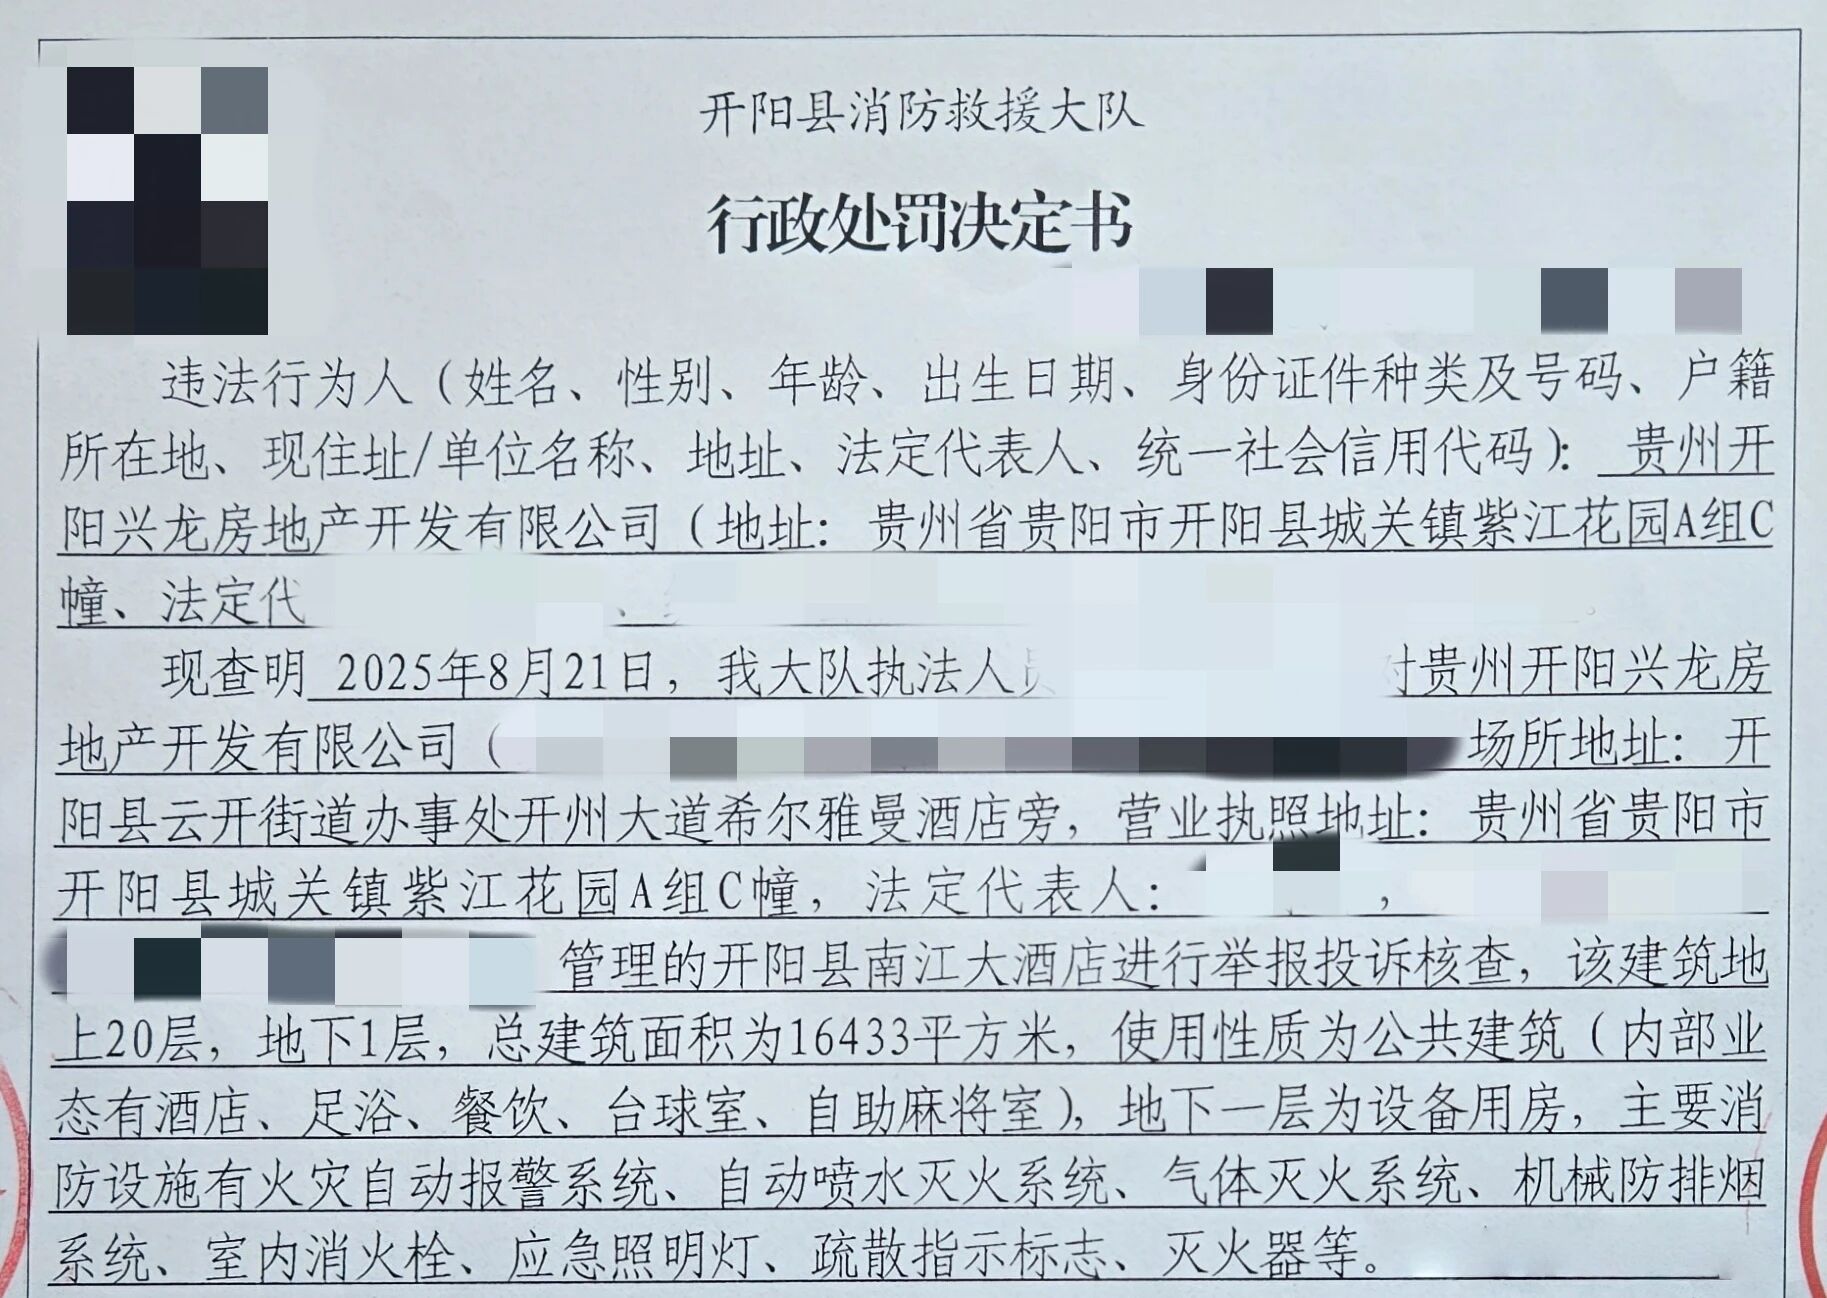 开阳县消防救援大队
行政处罚决定书
违法行为人（姓名、性别、年龄、出生日期、身份证件种类及号码、户籍
所在地、现住址/单位名称、地址、法定代表人、统一社会信用代码）：贵州开
阳兴龙房地产开发有限公司（地址：贵州省贵阳市开阳县城关镇紫江花园A组C
幢、法定代 、
现查明 2025年8月21日，我大队执法人员 对贵州开阳兴龙房
地产开发有限公司（ 场所地址：开
阳县云开街道办事处开州大道希尔雅曼酒店旁，营业执照地址：贵州省贵阳市
开阳县城关镇紫江花园A组C幢，法定代表人： ，
管理的开阳县南江大酒店进行举报投诉核查，该建筑地
上20层，地下1层，总建筑面积为16433平方米，使用性质为公共建筑（内部业
态有酒店、足浴、餐饮、台球室、自助麻将室），地下一层为设备用房，主要消
防设施有火灾自动报警系统、自动喷水灭火系统、气体灭火系统、机械防排烟
系统、室内消火栓、应急照明灯、疏散指示标志、灭火器等。